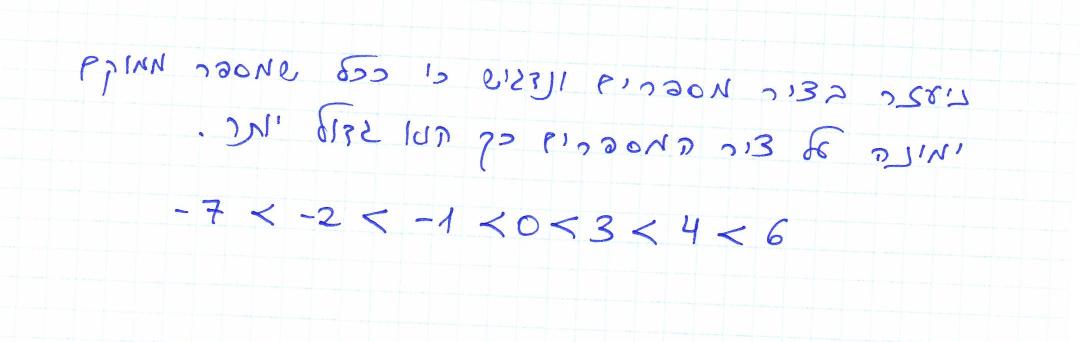 ניעזר בציר מספרים ונדגיש כי ככל שמספר ממוקם
ימינה על ציר המספרים כך הוא גדול יותר.
-7 < -2 < -1 < 0 < 3 < 4 < 6